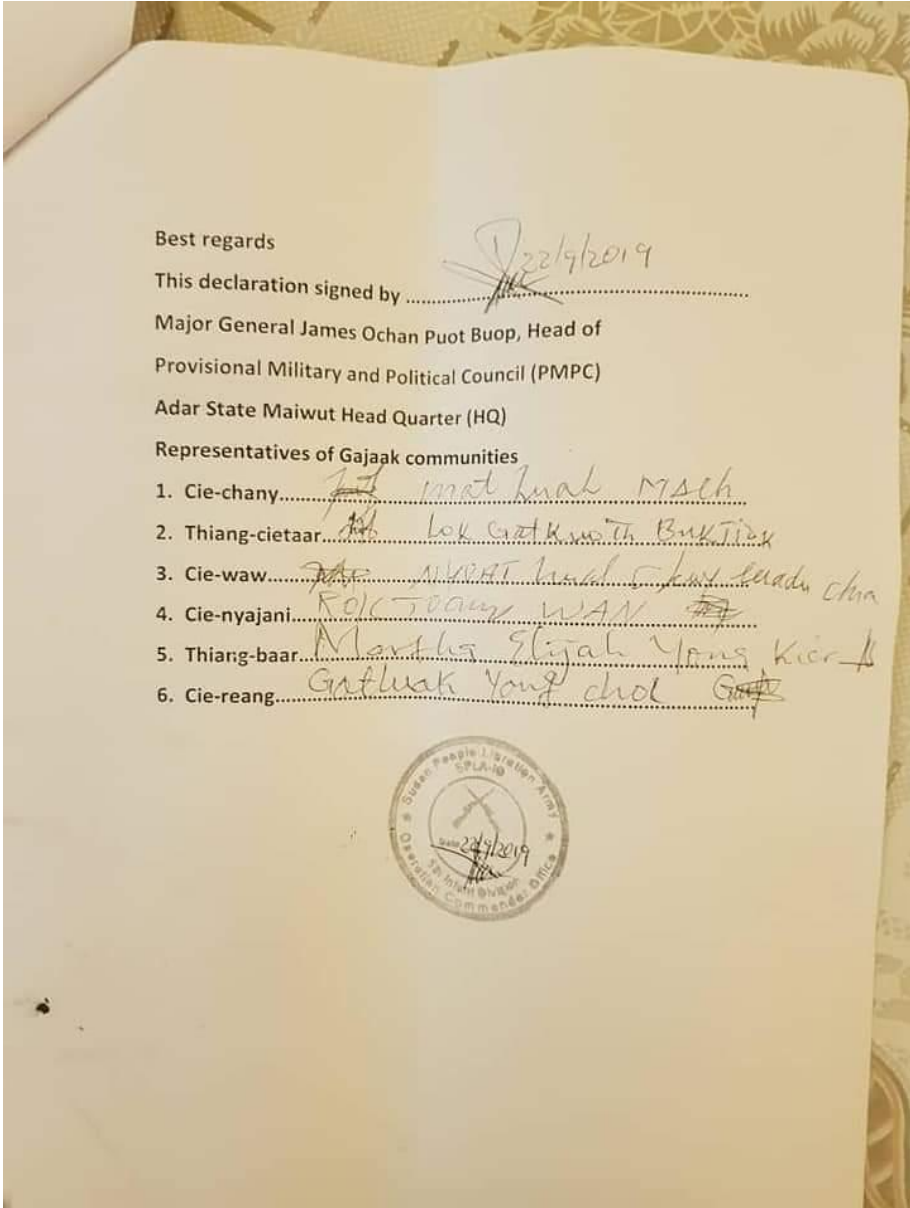 Best regards
22/9/2019
This declaration signed by ................................................................
Major General James Ochan Puot Buop, Head of
Provisional Military and Political Council (PMPC)
Adar State Maiwut Head Quarter (HQ)
Representatives of Gajaak communities
1. Cie-chany..........
2. Thiang-cietaar.......... Lok Gatkuoth
3. Cie-waw..........
4. Cie-nyajani.......... WAN
5. Thiang-baar.......... Martha Elijah Yong Kier
6. Cie-reang.......... Gatluak Yong chol
Sudan People Libration Army
SPLA-IO
Date 22/9/2019
5th Infant Division
Operation Commander Office